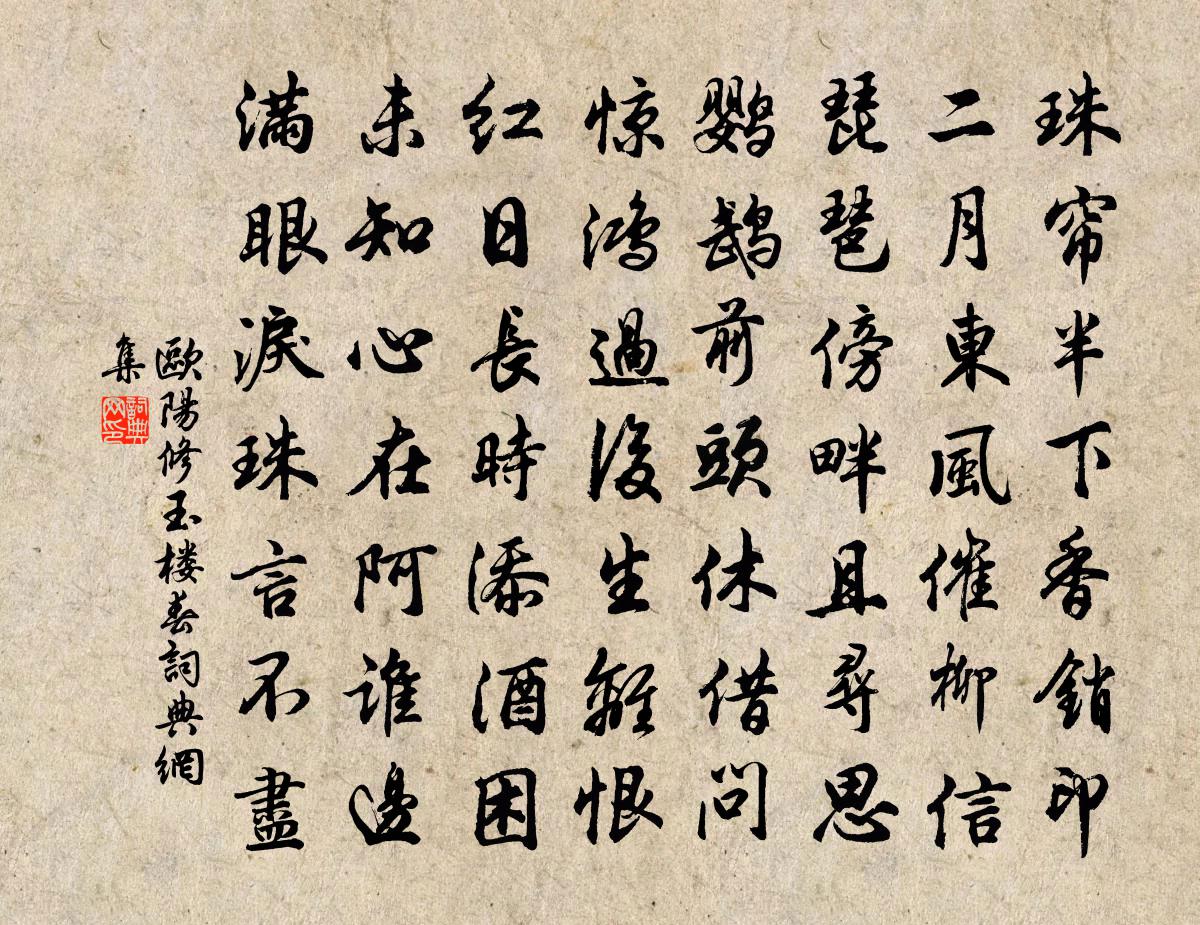 珠帘半下香銷印
二月東風催柳信
琵琶傍畔且尋思
鹦鹉前頭休借問
惊鸿過後生離恨
红日長時添酒困
未知心在阿誰邊
满眼淚珠言不盡
歐陽修玉楼春詞典網
集
詞典网印